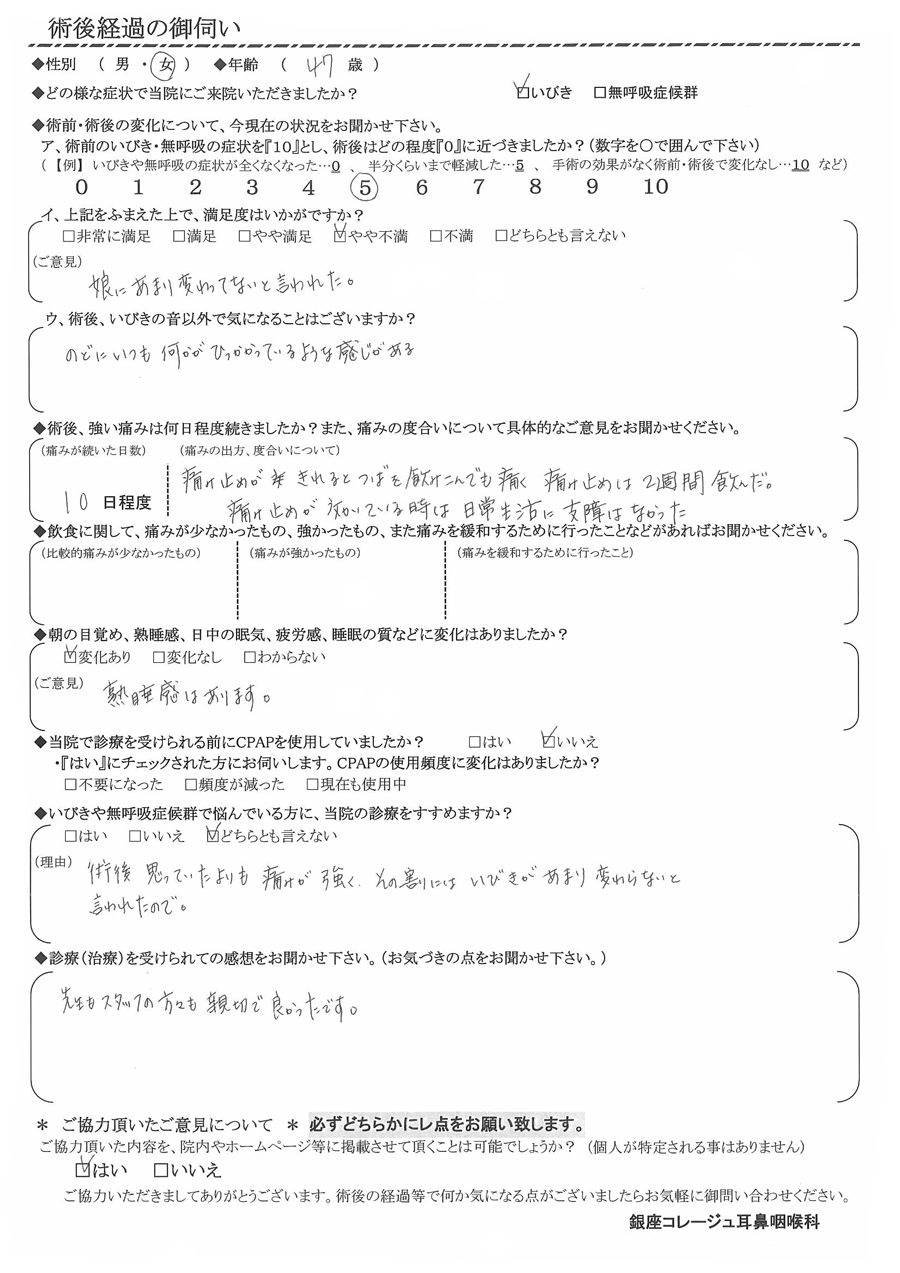 術後経過の御伺い
◆性別 （ 男 ・ 女 ） ◆年齢 （ 47 歳 ）
◆どの様な症状で当院にご来院いただきましたか？ ☑いびき □無呼吸症候群
◆術前・術後の変化について、今現在の状況をお聞かせ下さい。
ア、術前のいびき・無呼吸の症状を『10』とし、術後はどの程度『0』に近づきましたか？（数字を〇で囲んで下さい）
（ 【例】 いびきや無呼吸の症状が全くなくなった…0 、 半分くらいまで軽減した…5 、 手術の効果がなく術前・術後で変化なし…10 など）
0 1 2 3 4 5 6 7 8 9 10
イ、上記をふまえた上で、満足度はいかがですか？
□非常に満足 □満足 □やや満足 ☑やや不満 □不満 □どちらとも言えない
（ご意見）
娘にあまり変わってないと言われた。
ウ、術後、いびきの音以外で気になることはございますか？
のどにいつも何かがひっかかっているような感じがある
◆術後、強い痛みは何日程度続きましたか？また、痛みの度合いについて具体的なご意見をお聞かせください。
（痛みが続いた日数） （痛みの出方、度合いについて）
痛み止めが きれるとつばを飲みこんでも痛く 痛み止めは2週間飲んだ。
10 日程度 痛み止めが効いている時は日常生活に支障はなかった
◆飲食に関して、痛みが少なかったもの、強かったもの、また痛みを緩和するために行ったことなどがあればお聞かせください。
（比較的痛みが少なかったもの） （痛みが強かったもの） （痛みを緩和するために行ったこと）
◆朝の目覚め、熟睡感、日中の眠気、疲労感、睡眠の質などに変化はありましたか？
☑変化あり □変化なし □わからない
（ご意見） 熟睡感はあります。
◆当院で診療を受けられる前にCPAPを使用していましたか？ □はい ☑いいえ
・『はい』にチェックされた方にお伺いします。CPAPの使用頻度に変化はありましたか？
□不要になった □頻度が減った □現在も使用中
◆いびきや無呼吸症候群で悩んでいる方に、当院の診療をすすめますか？
□はい □いいえ ☑どちらとも言えない
（理由） 術後思っていたよりも痛みが強く、その割にはいびきがあまり変わらないと
言われたので。
◆診療（治療）を受けられての感想をお聞かせ下さい。（お気づきの点をお聞かせ下さい。）
先生もスタッフの方々も親切で良かったです。
＊ ご協力頂いたご意見について ＊ 必ずどちらかにレ点をお願い致します。
ご協力頂いた内容を、院内やホームページ等に掲載させて頂くことは可能でしょうか？ （個人が特定される事はありません）
☑はい □いいえ
ご協力いただきましてありがとうございます。術後の経過等で何か気になる点がございましたらお気軽に御問い合わせください。
銀座コレージュ耳鼻咽喉科